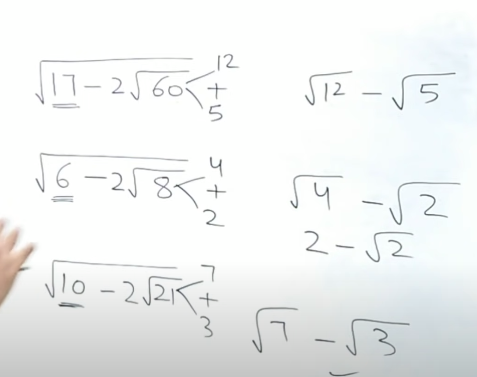 √(17 − 2√60) < 12 + 5 √12 − √5
√(6 − 2√8) < 4 + 2 √4 − √2
2 − √2
√(10 − 2√21) < 7 + 3 √7 − √3